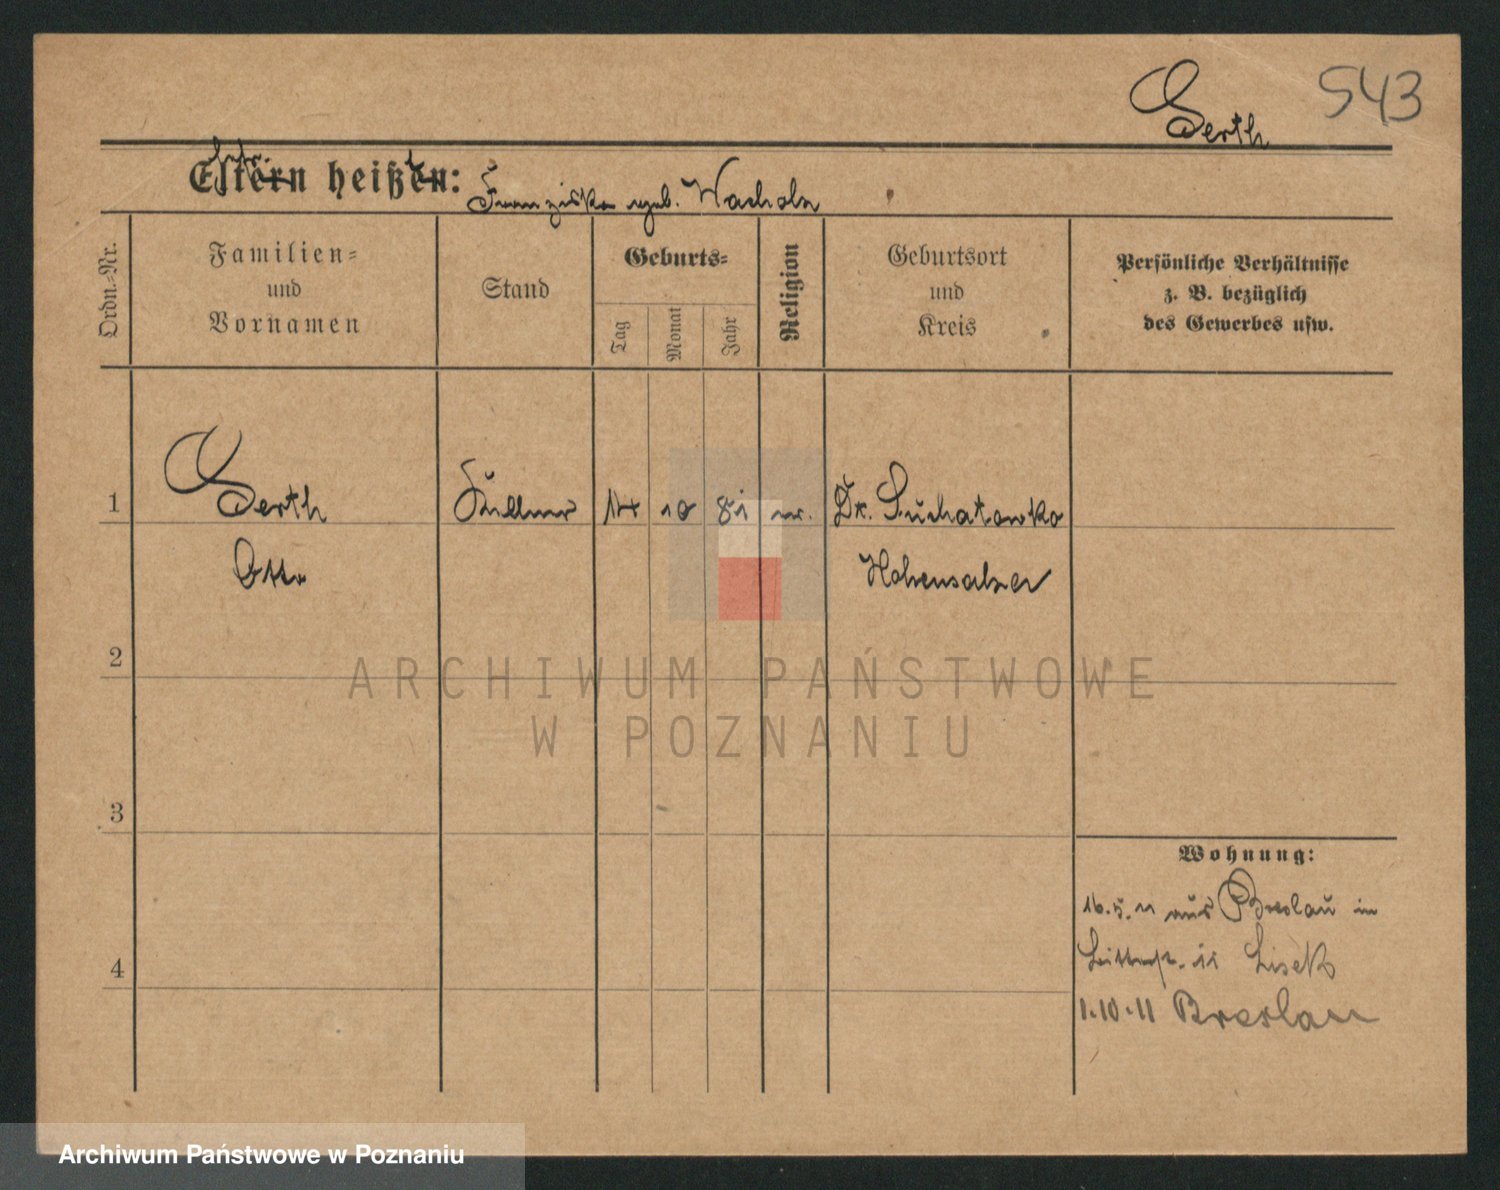 Gerth 543
Eltern heißen: Franziska geb. Wacholz
Ordn.-Nr.
Familien=
und
Vornamen
Stand
Geburts=
Tag
Monat
Jahr
Religion
Geburtsort
und
Kreis
Persönliche Verhältnisse
z. B. bezüglich
des Gewerbes usw.
1 Gerth Kellner 14 10 81 Dt. Suchatowko
Otto Hohensalza
2
3
4
Wohnung:
16.5.11 aus Breslau in
11 Lisek
1.10.11 Breslau
ARCHIWUM PAŃSTWOWE
W POZNANIU
Archiwum Państwowe w Poznaniu